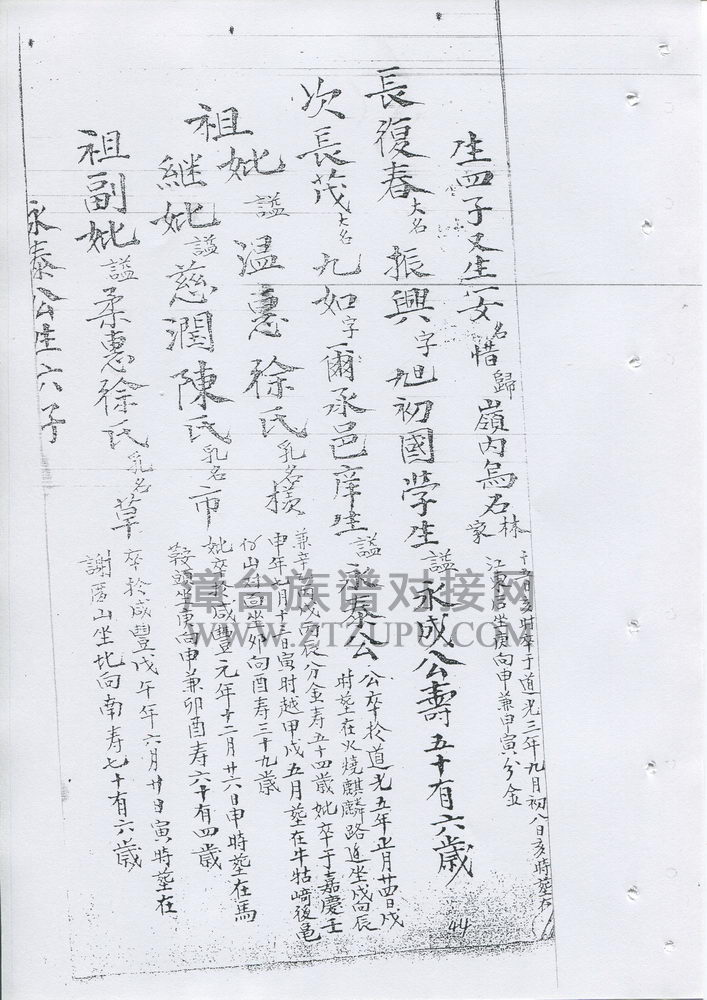 生四子又生一女名惜歸嶺内烏石林家
卒于道光三年九月初八日亥時塟在
坐庚向申兼甲寅分金
長復春大名振興字旭初國學生謚永成公壽五十有六歲
次長茂大名九如字爾承邑庠生謚永泰公
公卒於道光五年正月廿四日戌
時塟在火燒麒麟路坐戌向辰
兼辛丙戌丙辰分金寿五十四歲妣卒于嘉慶壬
申年月十三日寅時越甲戌五月塟在牛牯崎後龟
山坐卯向酉寿三十九歲
祖妣謚温惠徐氏乳名
継妣謚慈潤陳氏乳名市
妣卒於咸豐元年十二月廿六日申時塟在馬
鞍頭坐庚向申兼卯酉寿六十有四歲
祖副妣謚柔惠徐氏乳名草
卒於咸豐戊午年六月廿日寅時塟在
謝厝山坐北向南寿七十有六歲
永泰公生六子
44
漳台族谱对接网
WWW.ZTZUPU.COM